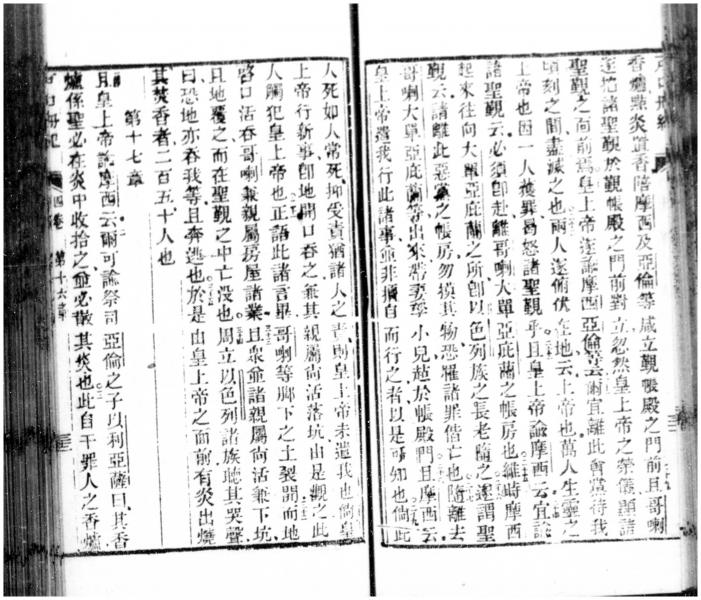 戶口冊紀
香爐焚炎置香陪摩西及亞倫等咸立覲帳殿之門前且哥喇
遂招諸聖覲於覲帳殿之門前對立忽然皇上帝之榮儀顯諸
聖覲之面前焉皇上帝遂諭摩西亞倫等云爾宜離此會黨待我
頃刻之間盡滅之也爾人遂俯伏在地云上帝也萬人生靈之
上帝也因一人獲罪曷怒諸聖覲乎且皇上帝諭摩西云宜諭
諸聖覲云必須卽赴離哥喇大單亞庇蘭之帳房也維時摩西
起來往向大單亞庇蘭之所卽以色列族之長老隨之遂謂聖
覲云請離此惡黨之帳房勿摸其物恐罹諸罪偕亡也隨離去
哥喇大單亞庇蘭等出來帶妻孥小兒趁於帳殿門且摩西云
皇上帝遣我行此諸事並非擅自而行之者以是可知也倘此
人死如人常死抑受責猶諸人之責則皇上帝未遣我也倘皇
上帝行新事卽地開口吞之兼其親屬尚活落坑由是觀之此
人觸犯皇上帝也正語此諸言畢哥喇等腳下之土裂開而地
啓口活吞哥喇兼親屬房屋諸業且衆並諸親屬尚活兼下坑
且地覆之而在聖覲之中亡沒也周立以色列諸族聽其哭聲
曰恐地亦吞我等且奔逃也於是由皇上帝之面前有炎出燒
其焚香者二百五十人也
第十七章
且皇上帝諭摩西云爾可諭祭司亞倫之子以利亞薩曰其香
爐係聖必在炎中收拾之並必散其炎也此自干罪人之香爐
戶口冊紀 四卷 第十六章